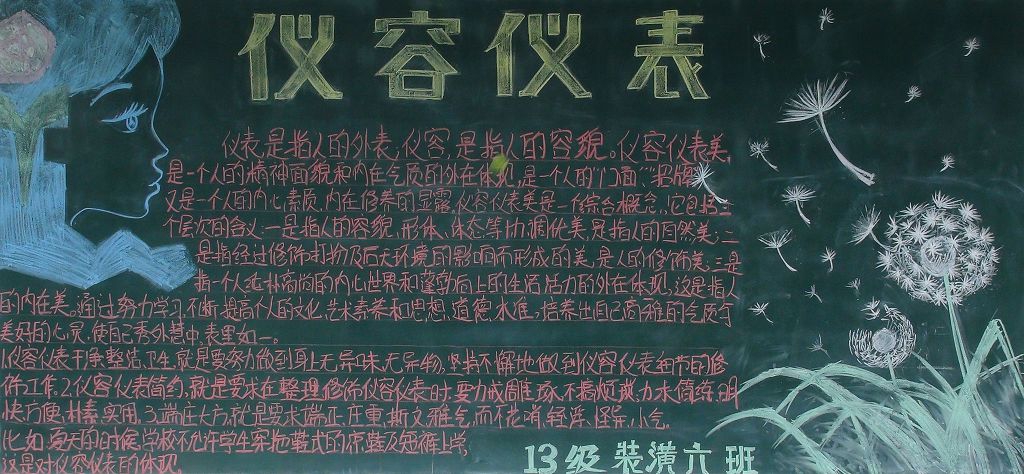 仪容仪表
仪表,是指人的外表;仪容,是指人的容貌。仪容仪表美,
是一个人的精神面貌和内在气质的外在体现,是一个人的"门面""招牌"
又是一个人的内心素质,内在修养的显露。仪容仪表美是一个综合概念,它包括三
个层次的含义:一是指人的容貌、形体、体态等协调优美,是指人的自然美;二
是指经过修饰打扮及后天环境的影响而形成的美,是人的修饰美;三是
指一个人纯朴高尚的内心世界和蓬勃向上的生活活力的外在体现,这是指人
的内在美。通过努力学习,不断提高个人的文化,艺术素养和思想、道德水准,培养出自己高雅的气质与
美好的心灵,使自己秀外慧中,表里如一。
1仪容仪表干净整洁,卫生,就是要努力做到身上无异味,无异物,坚持不懈地做到仪容仪表细节的修
饰工作。2仪容仪表简约,就是要求在整理修饰仪容仪表时,要力戒雕琢,不搞烦琐,力求简练,明
快方便,朴素,实用。3端庄大方,就是要求端正庄重,斯文雅气,而不花哨,轻浮,怪异,小气。
比如,夏天的时候,学校不允许学生穿拖鞋式的凉鞋及短裤上学,
这是对仪容仪表的体现。
13级 装潢六班